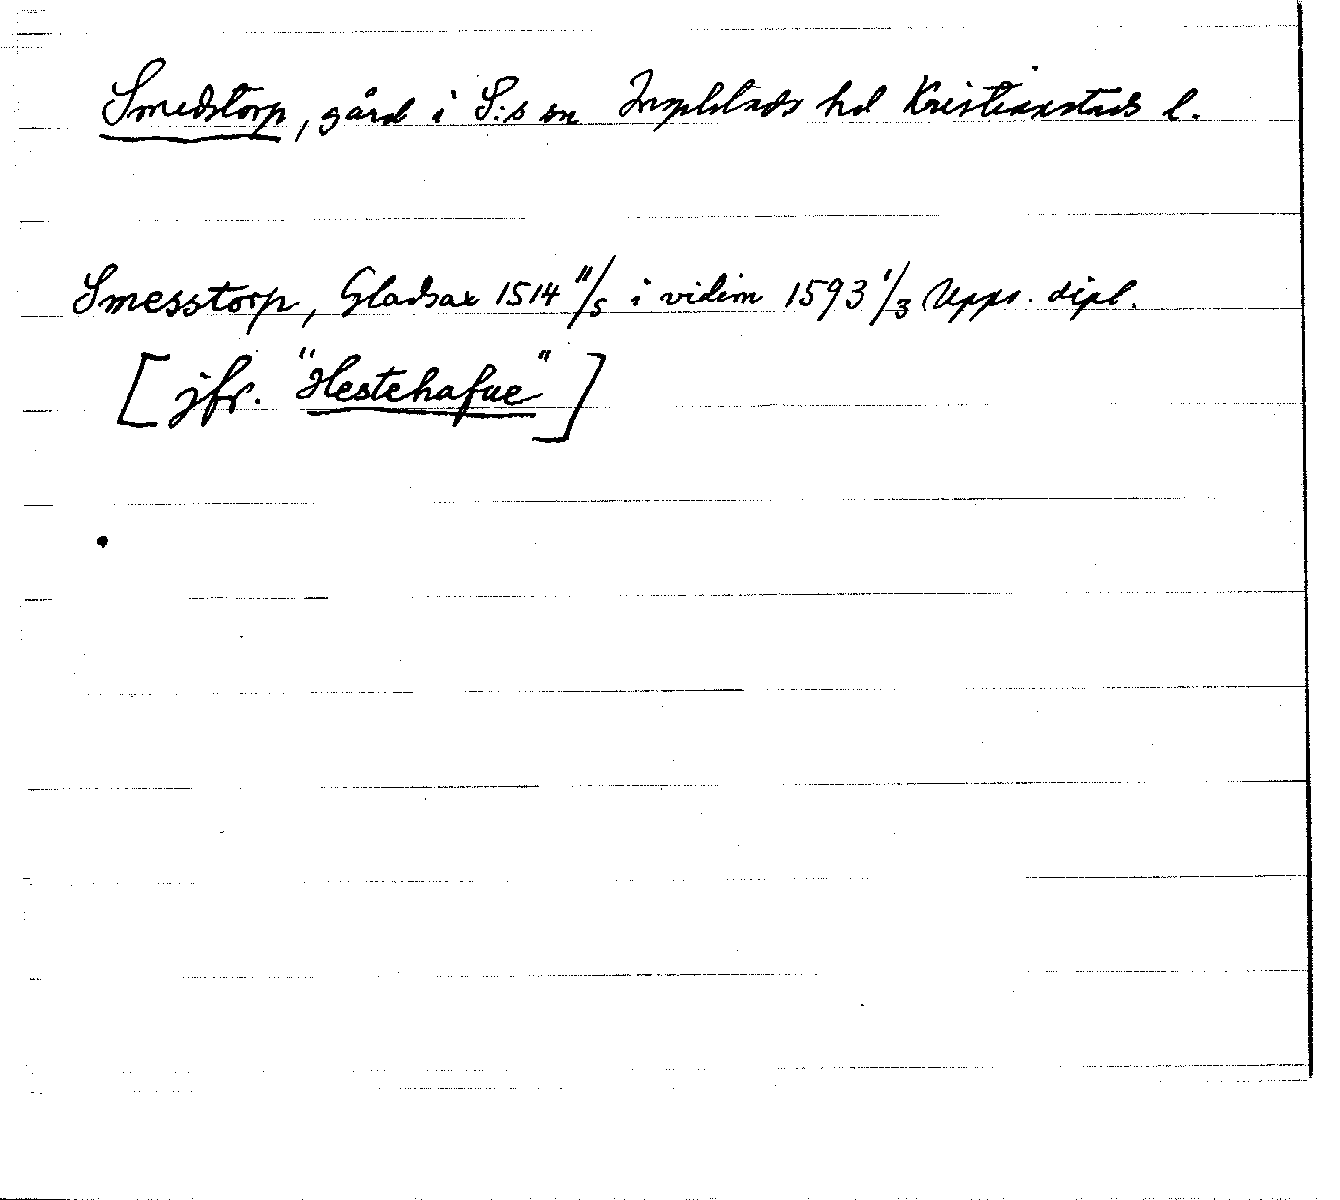 Smedstorp, gård i S:s sn Ingelstads hd Kristianstads l.
Smesstorp, Gladsax 1514 11/5 i vidim 1593 1/3 Upps. dipl.
[jfr. "Hestehafue"]